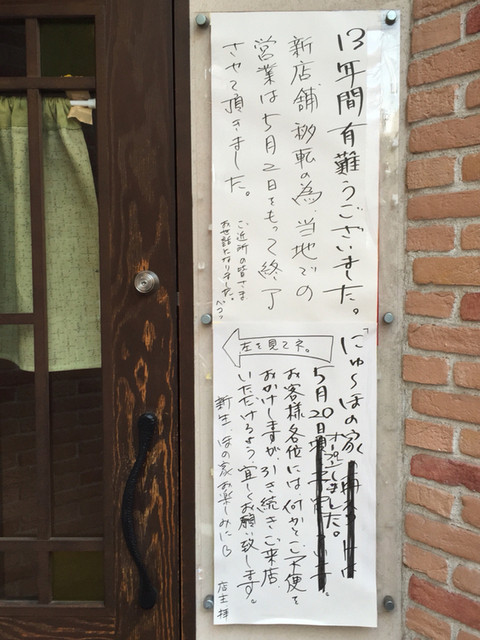 13年間有難うございました。
新店舗移転の為、当地での
営業は5月2日をもって終了
させて頂きました。
ご近所の皆さま
お世話となりました。ペコリ
左を見てネ。
「にゅ〜ほの家
5月20日
オープンしました。
お客様各位には、何かとご不便を
おかけしますが、引き続きご来店
いただけるよう宜しくお願い致します。
新生、ほの家お楽しみに
店主 拝